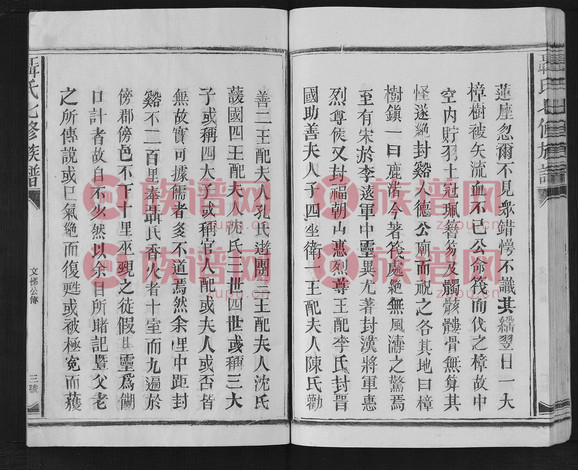 蓮座忽爾不見衆錯愕不識其繇翌日一大
樟樹被矢流血不已公命筏而伐之樟故中
空內貯羽士冠珮簪笏及髑骸髏骨無算其
怪遂絕封谿人德公廟而祝之各其地曰樟
樹鎮一曰鹿渚今著筏處絕無風濤之驚焉
至有宋於李遠軍中靈異尤著封濱將軍惠
烈尊侯又封福朝山惠烈尊王配李氏封晋
國助善夫人子四坐衛一王配夫人陳氏勸
善二王配夫人孔氏遊團三王配夫人沈氏
護國四王配夫人沈氏三世四世或稱三大
子或稱四大子或稱官人配或夫人或否皆
無故實可據儒者多不道焉然余里中距封
谿不二百里奉聶氏香火者十室而九遍於
傍郡傍邑不下十里巫覡之徒假其靈爲餬
口計者故自不少然以余目所睹記曁父老
之所傳說或已氣絕而復甦或被極寃而獲
聶氏七修族譜
文悌公傳
三號
聶氏七修族譜
族谱网
zupu.cn